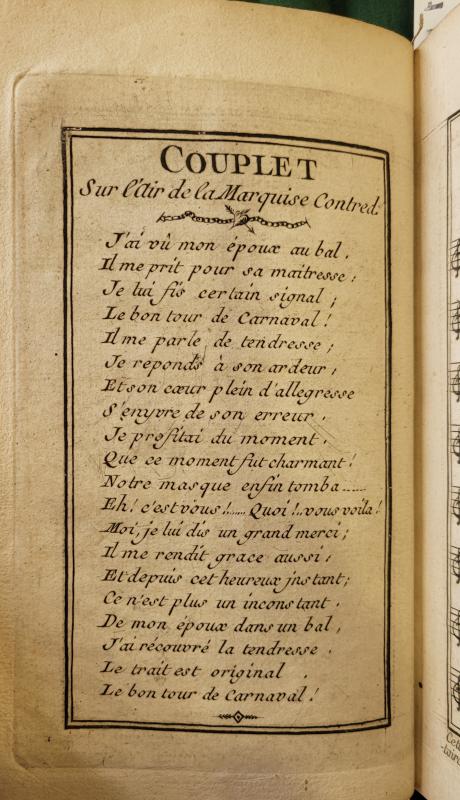 COUPLET
Sur l'Air de la Marquise Contred.
J'ai vû mon époux au bal,
Il me prit pour sa maitresse;
Je lui fis certain signal;
Le bon tour de Carnaval!
Il me parle de tendresse;
Je reponds à son ardeur,
Et son cœur plein d'allegresse
S'enyvre de son erreur.
Je profitai du moment.
Que ce moment fut charmant!
Notre masque enfin tomba......
Eh! c'est vous!...... Quoi!..vous voila!
Moi, je lui dis un grand merci;
Il me rendit grace aussi;
Et depuis cet heureux jnstant;
Ce n'est plus un inconstant.
De mon époux dans un bal,
J'ai récouvré la tendresse.
Le trait est original.
Le bon tour de Carnaval!